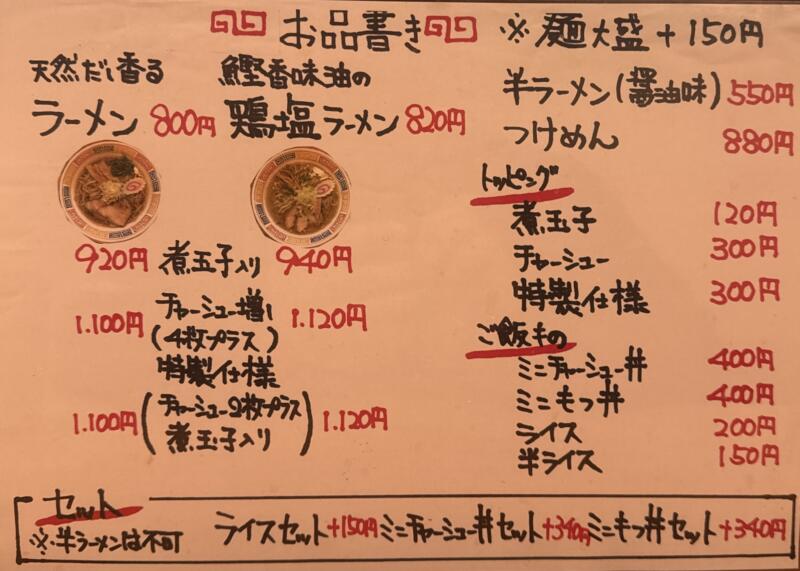 お品書き
※麺大盛+150円
天然だし香る
ラーメン 800円
鰹香味油の
鶏塩ラーメン 820円
920円 煮玉子入り 940円
1.100円 チャーシュー増し 1.120円
(4枚プラス)
特製仕様
1.100円 (チャーシュー2枚プラス 煮玉子入り) 1.120円
半ラーメン(醤油味) 550円
つけめん 880円
トッピング
煮玉子 120円
チャーシュー 300円
特製仕様 300円
ご飯もの
ミニチャーシュー丼 400円
ミニもつ丼 400円
ライス 200円
半ライス 150円
セット
※半ラーメンは不可
ライスセット+150円 ミニチャーシュー丼セット+340円 ミニもつ丼セット+340円